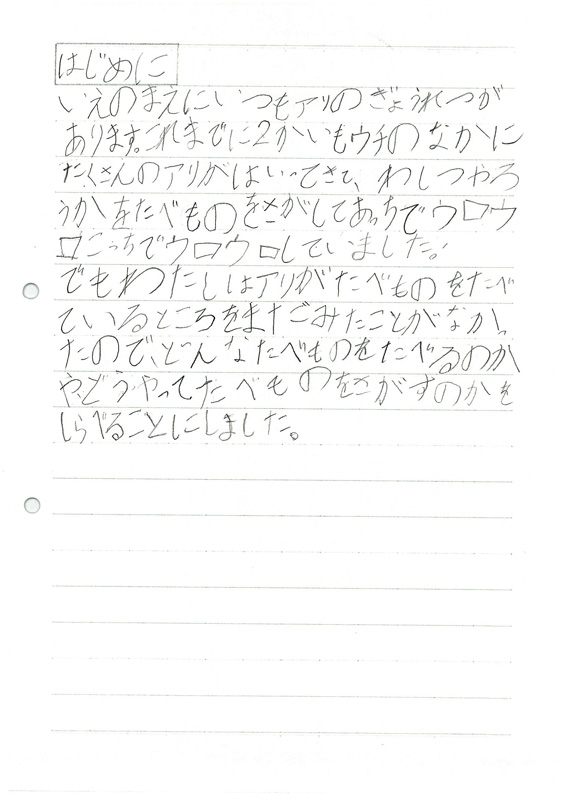 はじめに
いえのまえにいつもアリのぎょうれつが
あります。これまでに2かいもウチのなかに
たくさんのアリがはいってきて、わしつやろ
うかをたべものをさがしてあっちでウロウ
ロこっちでウロウロしていました。
でもわたしはアリがたべものをたべ
ているところをまだごみたことがなかっ
たので、どんなたべものをたべるのか
や、どうやってたべものをさがすのかを
しらべることにしました。